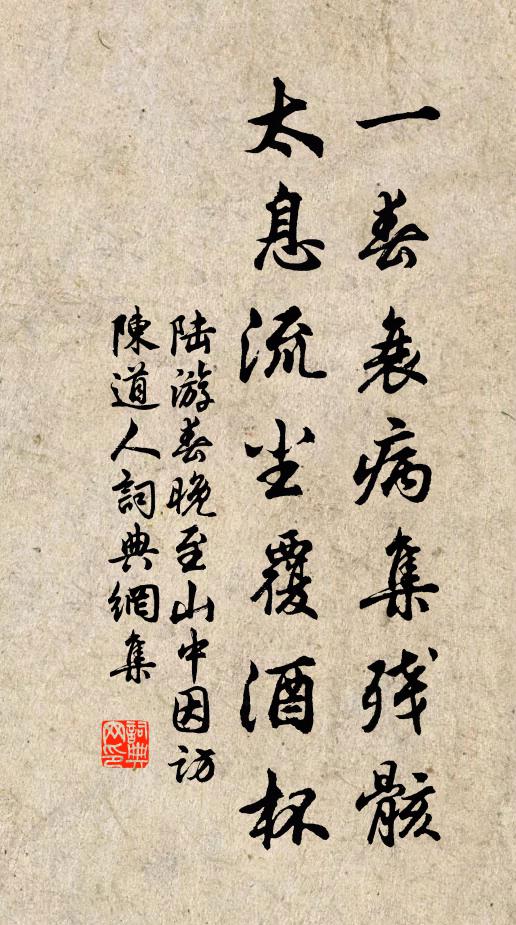 一春衰病集残骸
太息流尘覆酒杯
陆游春晚至山中因访
陳道人詞典網集
詞典网印